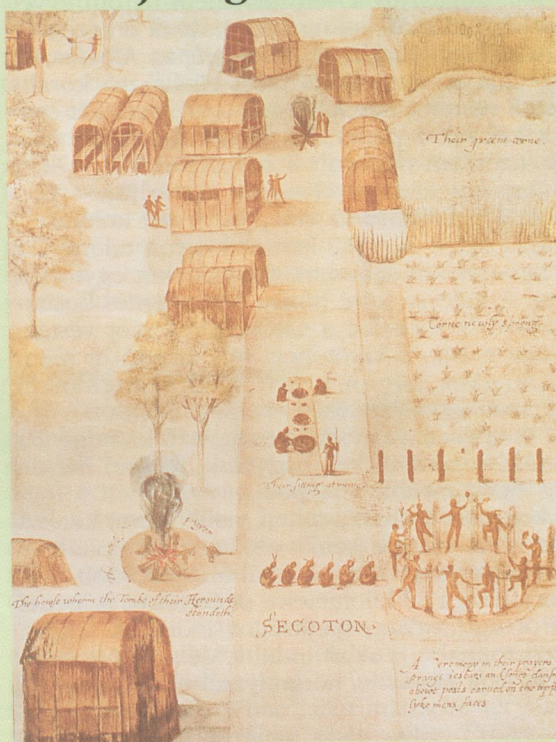 Their greene corne.
Corne newly sprong.
Their sitting at meate.
The house wherin the Tombe of their Herounds
standeth.
SECOTON.
A Ceremony in their prayers
strange iesturs an songs dansing
abowt posts carued on the topps
lyke mens faces.